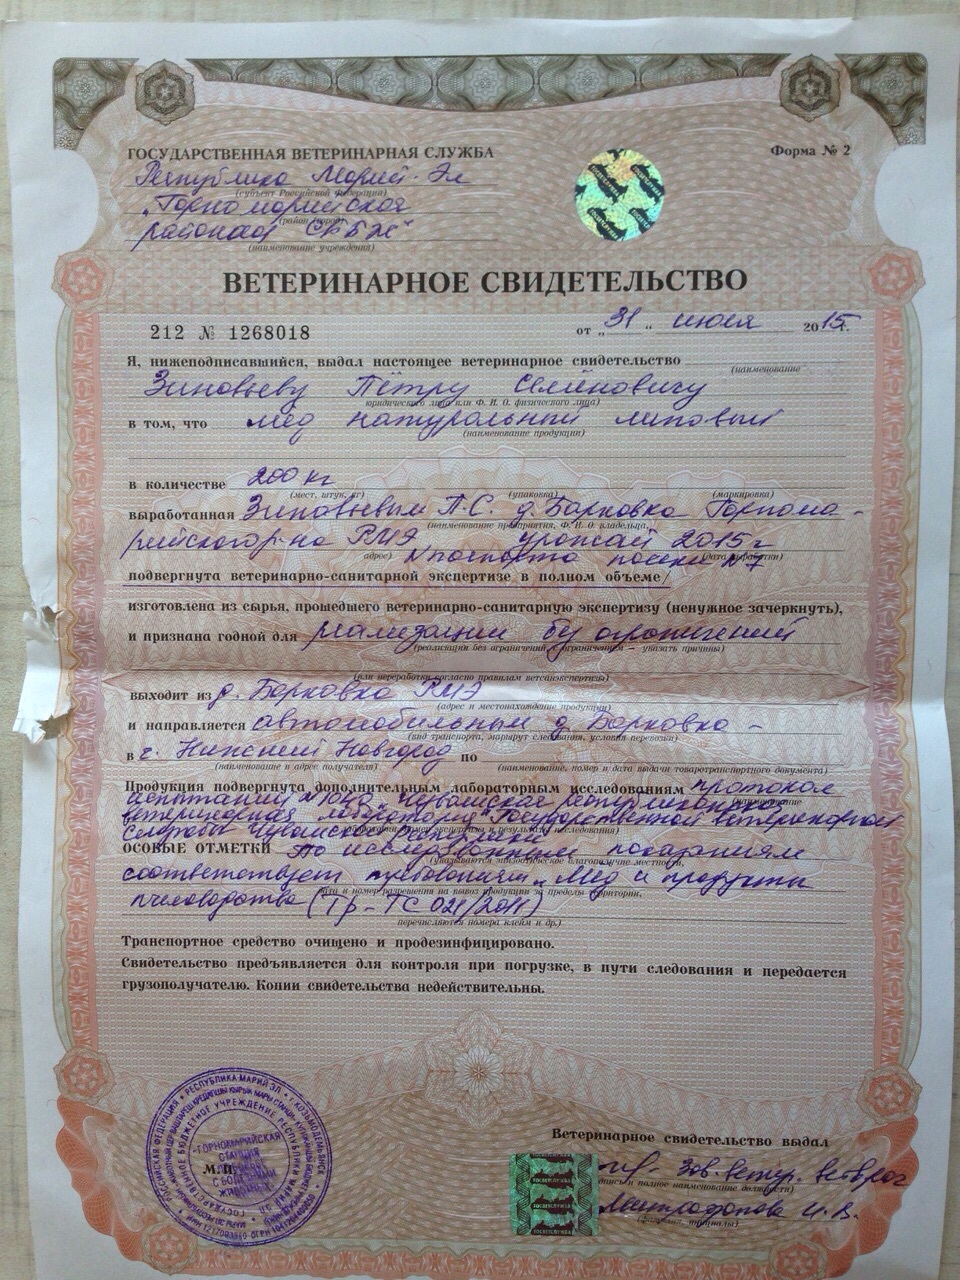 ГОСУДАРСТВЕННАЯ ВЕТЕРИНАРНАЯ СЛУЖБА
Форма № 2
Республика Марий-Эл
(субъект Российской Федерации)
"Горномарийская
(район (город)
районная СББЖ"
(наименование учреждения)
ВЕТЕРИНАРНОЕ СВИДЕТЕЛЬСТВО
212 № 1268018
от „31“ июля 2015г.
Я, нижеподписавшийся, выдал настоящее ветеринарное свидетельство
(наименование
Зиновьеву Пётру Семёновичу
юридического лица или Ф. И. О. физического лица)
в том, что мёд натуральный липовый
(наименование продукции)
в количестве 200 кг
(мест, штук, кг) (упаковка) (маркировка)
выработанная Зиновьевым П.С. д. Барковка Горнома-
(наименование предприятия, Ф. И. О. владельца,
рийского р-на РМЭ урожай 2015г
адрес) (дата выработки)
№ паспорта пасеки № 7
подвергнута ветеринарно-санитарной экспертизе в полном объеме/
изготовлена из сырья, прошедшего ветеринарно-санитарную экспертизу (ненужное зачеркнуть),
и признана годной для реализации без ограничений
(реализации без ограничений, ограничением – указать причины)
(или переработки согласно правилам ветсанэкспертизы)
выходит из д. Барковка РМЭ
(адрес и местонахождение продукции)
и направляется автомобильным д. Барковка –
(вид транспорта, маршрут следования, условия перевозки)
в г. Нижний Новгород по
(наименование и адрес получателя) (наименование, номер и дата выдачи товаротранспортного документа)
Продукция подвергнута дополнительным лабораторным исследованиям протокол
(наименование
испытаний "Чувашская республиканская
ветеринарная лаборатория" Государственной ветеринарной
службы Чувашской
ОСОБЫЕ ОТМЕТКИ По исследованным показаниям
(указываются эпизоотическое благополучие местности,
соответствует требованиям "Мёд и продукты
дата и номер разрешения на вывоз продукции за пределы территории,
пчеловодства (ТР-ТС 021/2011)
перечисляются номера клейм и др.)
Транспортное средство очищено и продезинфицировано.
Свидетельство предъявляется для контроля при погрузке, в пути следования и передается
грузополучателю. Копии свидетельства недействительны.
РОССИЙСКАЯ ФЕДЕРАЦИЯ • РЕСПУБЛИКА МАРИЙ ЭЛ • Г. КОЗЬМОДЕМЬЯНСК
ГОСУДАРСТВЕННОЕ БЮДЖЕТНОЕ УЧРЕЖДЕНИЕ РЕСПУБЛИКИ МАРИЙ ЭЛ
"ГОРНОМАРИЙСКАЯ
СТАНЦИЯ
С БОЛЕЗНЯМИ
ЖИВОТНЫХ"
М.П.
Ветеринарное свидетельство выдал
Зав. ветер.
и полное наименование должности)
Митрофанова И.В.